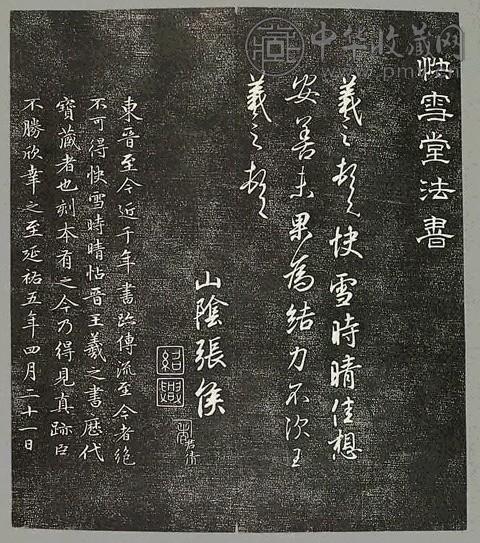 中华收藏网
快雪堂法書
羲之頓首快雪時晴佳想
安善未果為結力不次王
羲之頓首
山陰張侯
紹興
君倩
東晉至今近千年書跡傳流至今者絕
不可得快雪時晴帖晉王羲之書歷代
寶藏者也刻本有之今乃得見真跡臣
不勝欣幸之至延祐五年四月二十一日